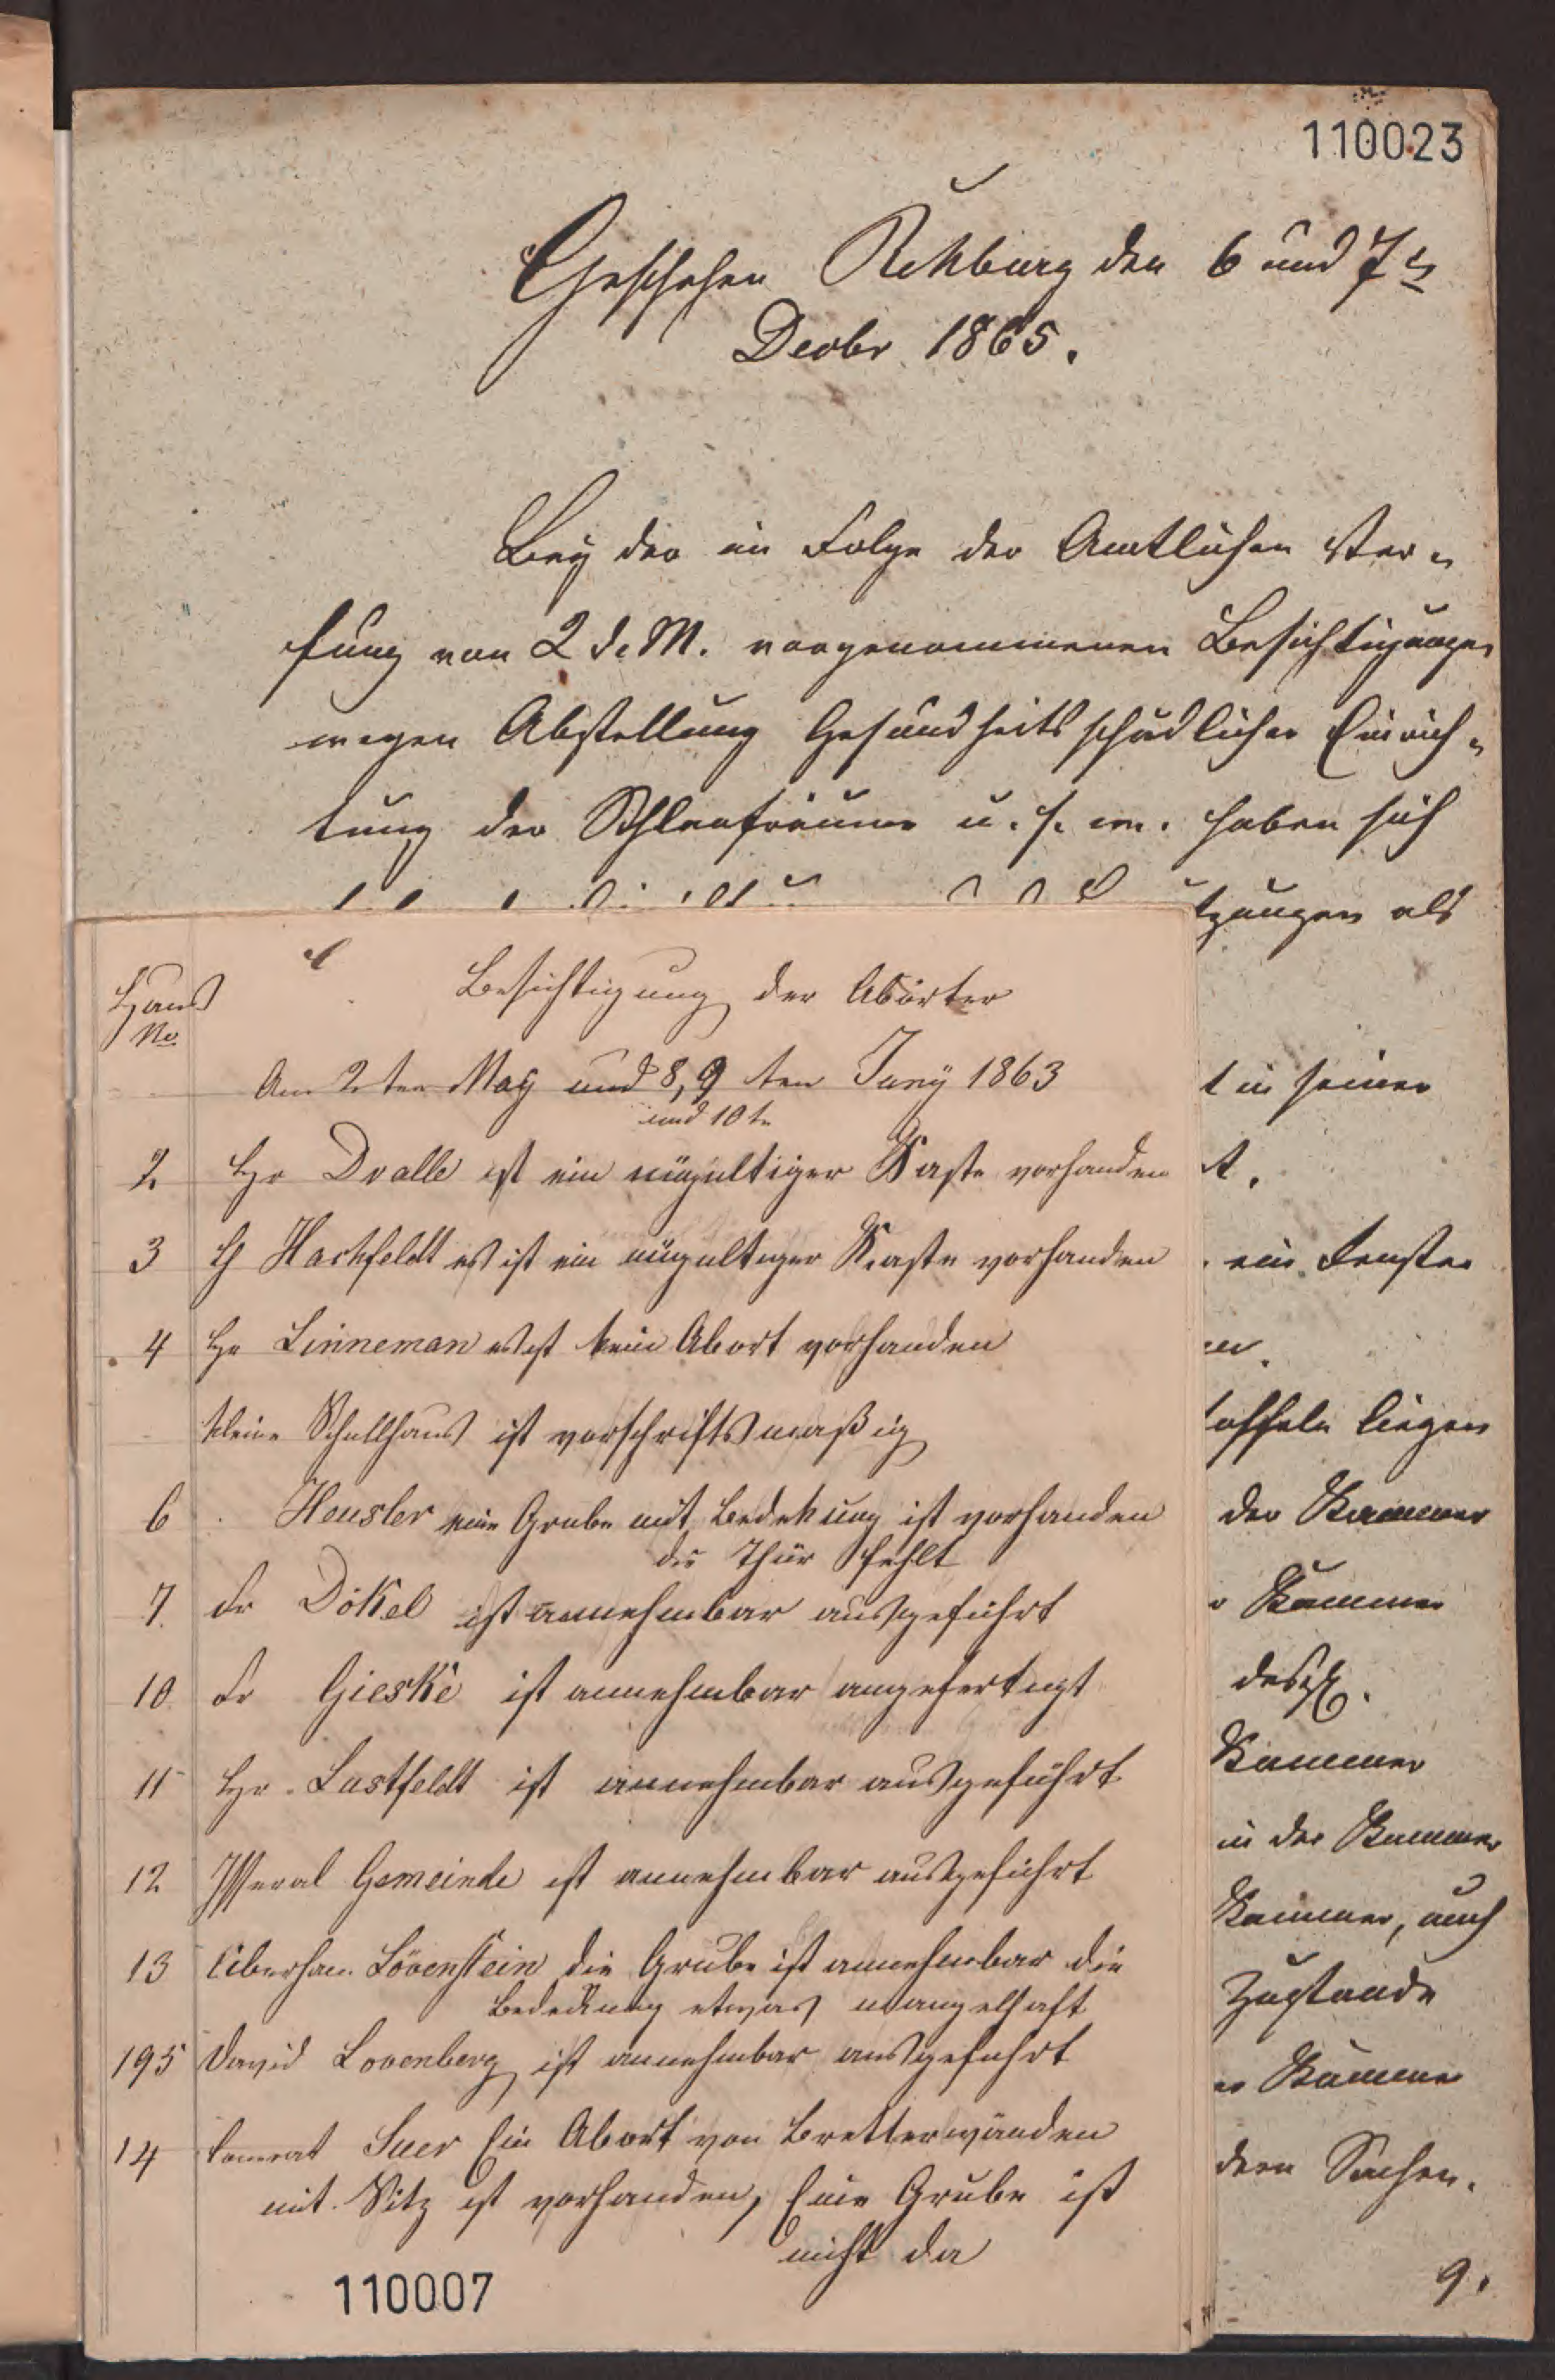 110023
Geschehen Rehburg den 6 und 7ts
Decbr 1865.
Bey der in Folge der Amtlichen Ver„
fung von 2 d. M. vorgenommenen Besichtigungen
wegen Abstellung Gesundheitsschädlicher Einrich„
tung der Schlafräume u. s. w. haben sich
tzungen als
t in seiner
t.
ein Fenster
toffeln liegen
der Kammer
Kammer
desgl.
Kammer
in der Kammer
Kammer, auch
Zustande
Kammer
dern Sachen.
9.
Haus
No
Besichtigung der Abörter
Am 2 ten May und 8, 9 ten Juny 1863
und 10 t.
2. Hr Dralle ist ein ungültiger Kaste vorhanden
3 H Hachfeldt es ist ein ungultiger Kaste vorhanden
4 Hr Linneman es ist kein Abort vorhanden
kleine Schullhaus ist vorschriftsmaßig
6 Heusler eine Grube mit Bedekung ist vorhanden
die Thür fehlt
7. Fr Dökel ist annehmbar ausgeführt
10 Fr Gieske ist annehmbar angefertigt
11 Hr. Lustfeldt ist annehmbar ausgeführt
12 Isseral Gemeinde ist annehmbar ausgeführt
13 Lövenstein die Grube ist annehmbar die
Bedeckung etwas mangelhaft
195 David Lovenberg ist annehmbar ausgefuhrt
14 Conrat Suer Ein Abort von Bretterwänden
mit Sitz ist vorhanden, Eine Grube ist
nicht da
110007